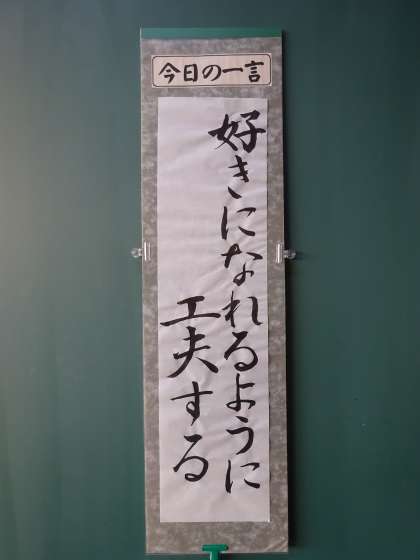 今日の一言
好きになれるように
工夫する